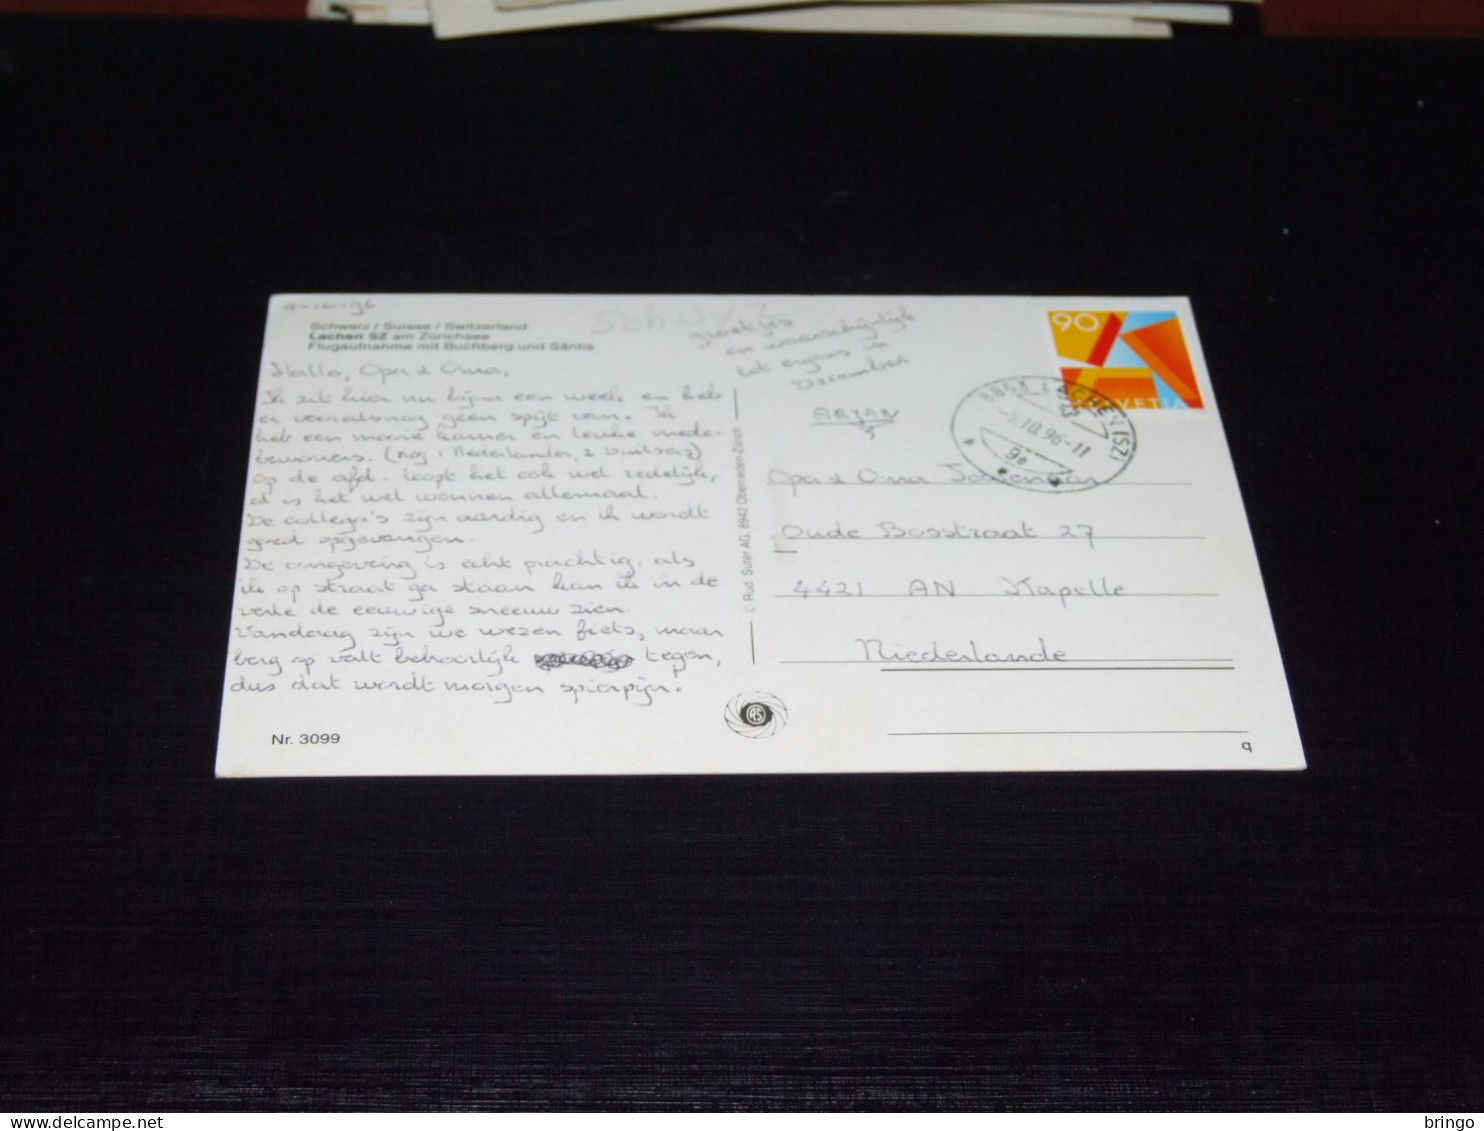 4-10-96
Schweiz / Suisse / Switzerland
Lachen SZ am Zürichsee
Flugaufnahme mit Buchberg und Säntis
Schwyz
Hallo, Opa & Oma,
Ik zit hier nu bijna een week en heb
er vooralsnog geen spijt van. Ik
heb een mooie kamer en leuke mede-
bewoners. (nog 1 Nederlander, 2 Duitsers)
op de afd. loopt het ook wel redelijk,
al is het wel wennen allemaal.
De collega's zijn aardig en ik wordt
goed opgevangen.
De omgeving is echt prachtig, als
ik op straat ga staan kan ik in de
verte de eeuwige sneeuw zien.
Vandaag zijn we wezen fiets, maar
berg op valt behoorlijk tegen,
dus dat wordt morgen spierpijn.
Groetjes
en waarschijnlijk
tot ergens in
December
ARJAN
Nr. 3099
© Rud. Suter AG, 8942 Oberrieden-Zürich
RS
90
HELVETIA
8853 LACHEN (SZ)
-5.10.96-11
Opa & Oma
Oude Bosstraat 27
4421 AN Kapelle
Niederlande
q
bringo